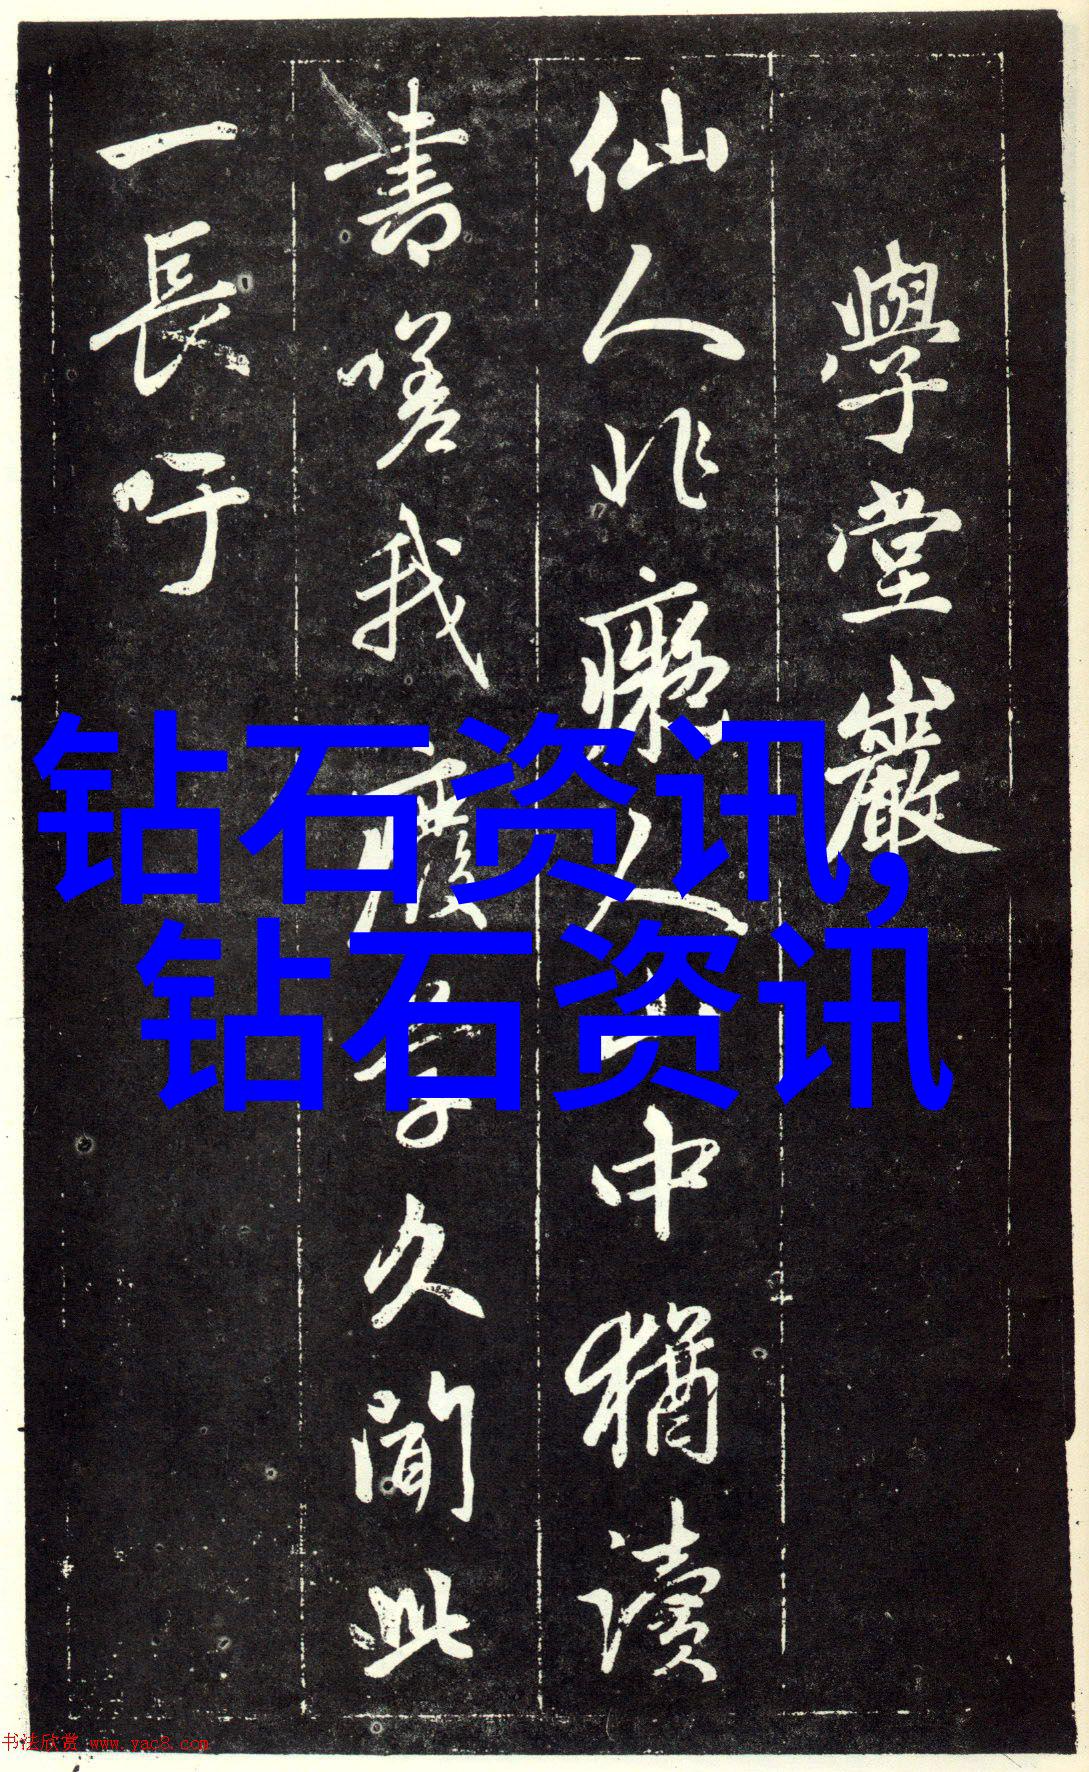 學堂巖
仙人非癡人山中猶讀
書嗟我廢學久聞此
一長吁
钻石资讯,
钻石资讯
书法欣赏 www.yac8.com